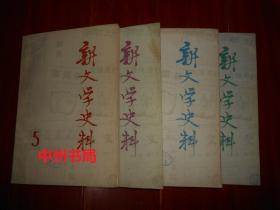 新文学史料
5
新文学史料
新文学史料
新文学史料
中州书局